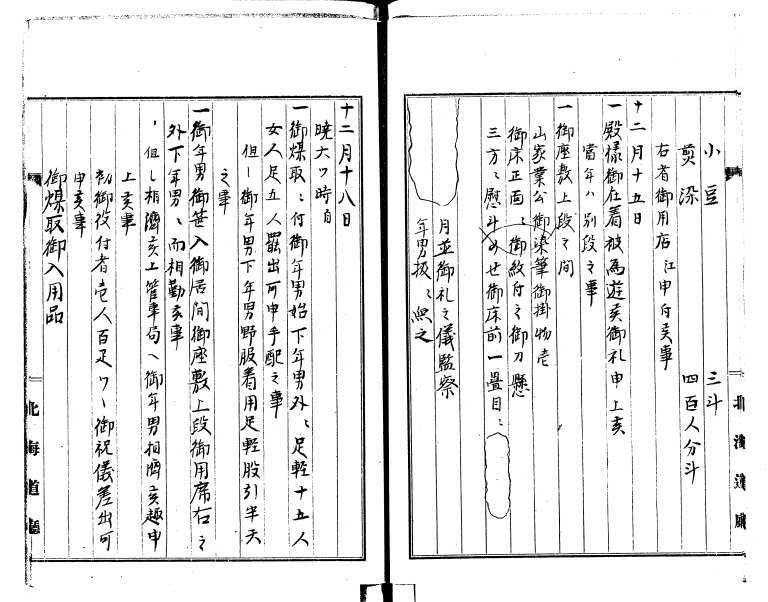 小豆　三斗
煎染　四百人分斗
右者御用店江申付候事
十二月十五日
一殿様御在着被為遊候御礼申上候
当年ハ別段之事
一御座敷上段之間
山家業公御染筆御掛物壱
御床正面ニ御紋付之御刀懸
三方ニ熨斗のせ御床前一畳目ニ
月並御礼之儀監察
年男扱ニ無之
北海道廳
十二月十八日
暁六ツ時自
一御煤取ニ付御年男始下年男外ニ足軽十五人
女人足五人罷出可申手配之事
但し御年男下年男野服着用足軽股引半天
之事
一御年男御笹入御居間御座敷上段御用席右之
外下年男ニ而相勤候事
但し相済候上管事局へ御年男相済候趣申
上候事
初御役付者壱人百疋ツヽ御祝儀差出可
申候事
御煤取御入用品
北海道廳